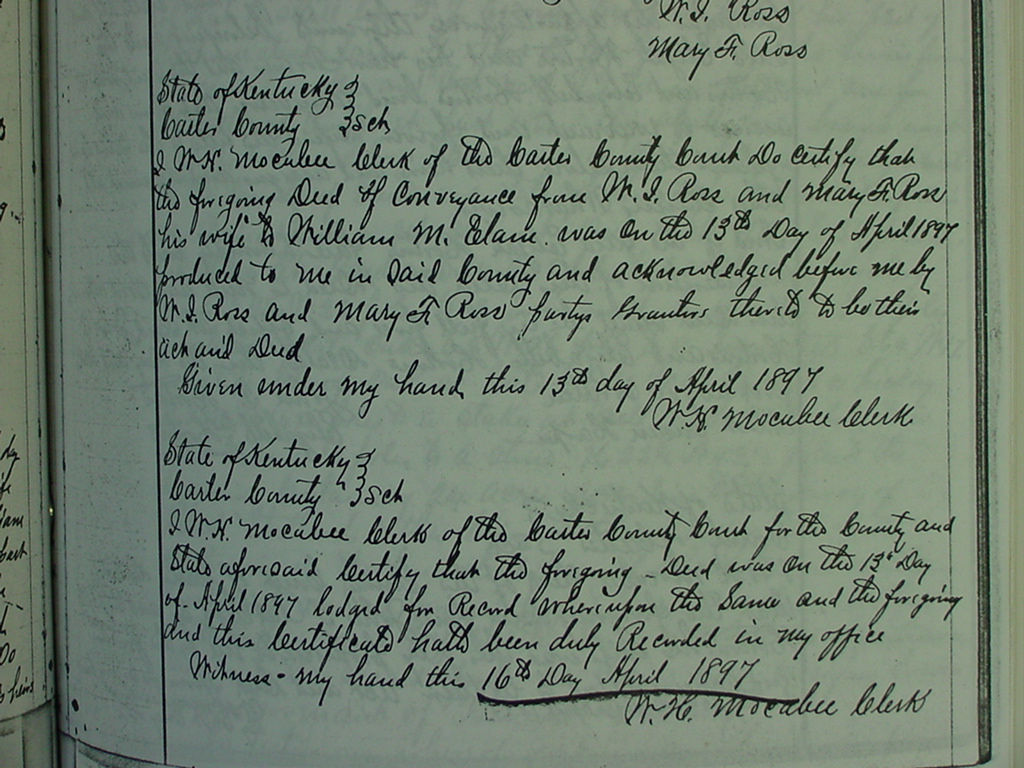 W. I. Ross
Mary F. Ross
State of Kentucky }
Carter County } Sct
I W. H. Mocabee Clerk of the Carter County Court Do certify that
the foregoing Deed of Conveyance from W. I. Ross and Mary F. Ross
his wife to William M. Elam. was on the 13th Day of April 1897
produced to me in said County and acknowledged before me by
W. I. Ross and Mary F. Ross partys Grantors thereto to be their
act and Deed
Given under my hand this 13th day of April 1897
W. H. Mocabee Clerk
State of Kentucky }
Carter County } Sct
I W. H. Mocabee Clerk of the Carter County Court for the County and
State aforesaid Certify that the foregoing - Deed was on the 13th Day
of April 1897 lodged for Record whereupon the Same and the foregoing
and this Certificate hath been duly Recorded in my office
Witness - my hand this 16th Day April 1897
W. H. Mocabee Clerk